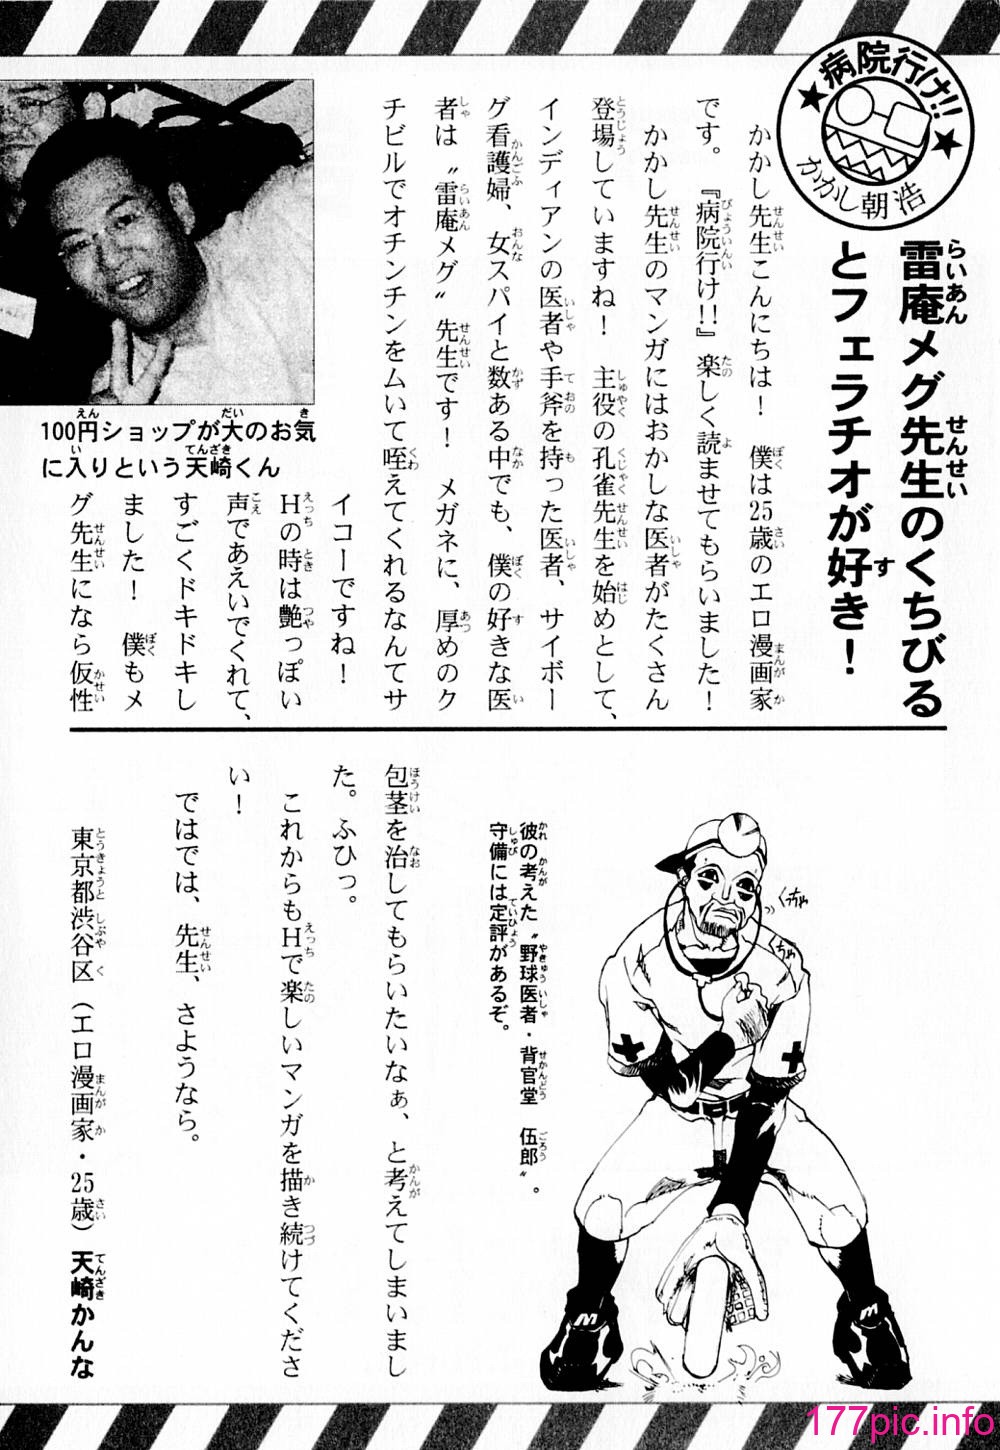 病院行け!!
かかし朝浩
雷庵メグ先生のくちびる
とフェラチオが好き！
かかし先生こんにちは！　僕は25歳のエロ漫画家
です。『病院行け!!』楽しく読ませてもらいました！
かかし先生のマンガにはおかしな医者がたくさん
登場していますね！　主役の孔雀先生を始めとして、
インディアンの医者や手斧を持った医者、サイボー
グ看護婦、女スパイと数ある中でも、僕の好きな医
者は〝雷庵メグ〟先生です！　メガネに、厚めのク
チビルでオチンチンをムいて咥えてくれるなんてサ
イコーですね！
Hの時は艶っぽい
声であえいでくれて、
すごくドキドキし
ました！　僕もメ
グ先生になら仮性
100円ショップが大のお気
に入りという天崎くん
包茎を治してもらいたいなぁ、と考えてしまいまし
た。ふひっ。
これからもHで楽しいマンガを描き続けてくださ
い！
ではでは、先生、さようなら。
東京都渋谷区（エロ漫画家・25歳）天崎かんな
彼の考えた〝野球医者・背官堂　伍郎〟。
守備には定評があるぞ。
くっちゃ
くちゃ
177pic.info